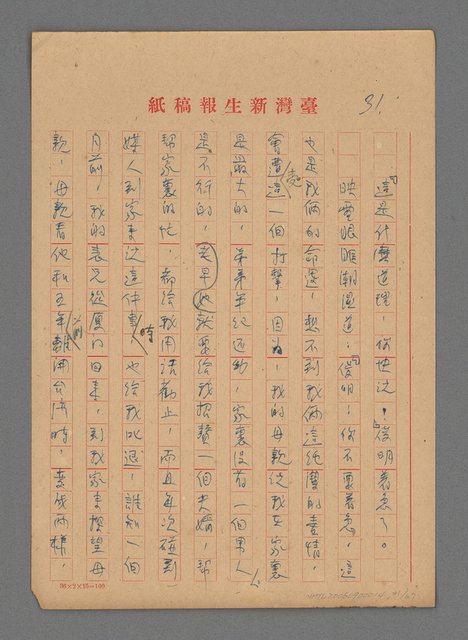 臺灣新生報稿紙
31
「這是什麼道理，你快說！」俊明著急了。
映雪眼眶潮濕道：「俊明，你不要著急，這
也是我倆的命運，想不到我倆這純潔的愛情，
會遭受這一個打擊，因為，我的母親說我在家裏
是最大的，弟弟年紀還勑，家裏沒有一個男人，
是不行的，老早她就要給我招贅一個夫婿，幫
幫家裏的忙，都給我用話勸止，而且每次碰到
媒人到家來說這件事時，也給我叱退，誰知一個
月前，我的表兄從厦门回来，到我家来探望母
親，母親看他和五年前離開台湾時，变成两樣，
36×2×15=100